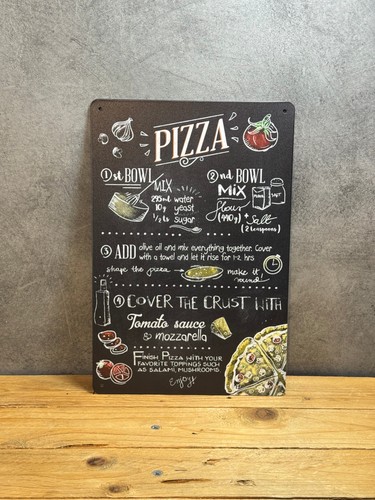 PIZZA
① st BOWL
MIX
295ml water
10g yeast
1/2 ts sugar
② nd BOWL
MIX
flour
(440g)
+ Salt
(2 teaspoons)
③ ADD olive oil and mix everything together. Cover
with a towel and let it rise for 1-2 hrs
shape the pizza
make it
round
④ COVER THE CRUST WITH
Tomato sauce
& mozzarella
FINISH PIZZA WITH YOUR
FAVORITE TOPPINGS SUCH
AS SALAMI, MUSHROOMS.
Enjoy!